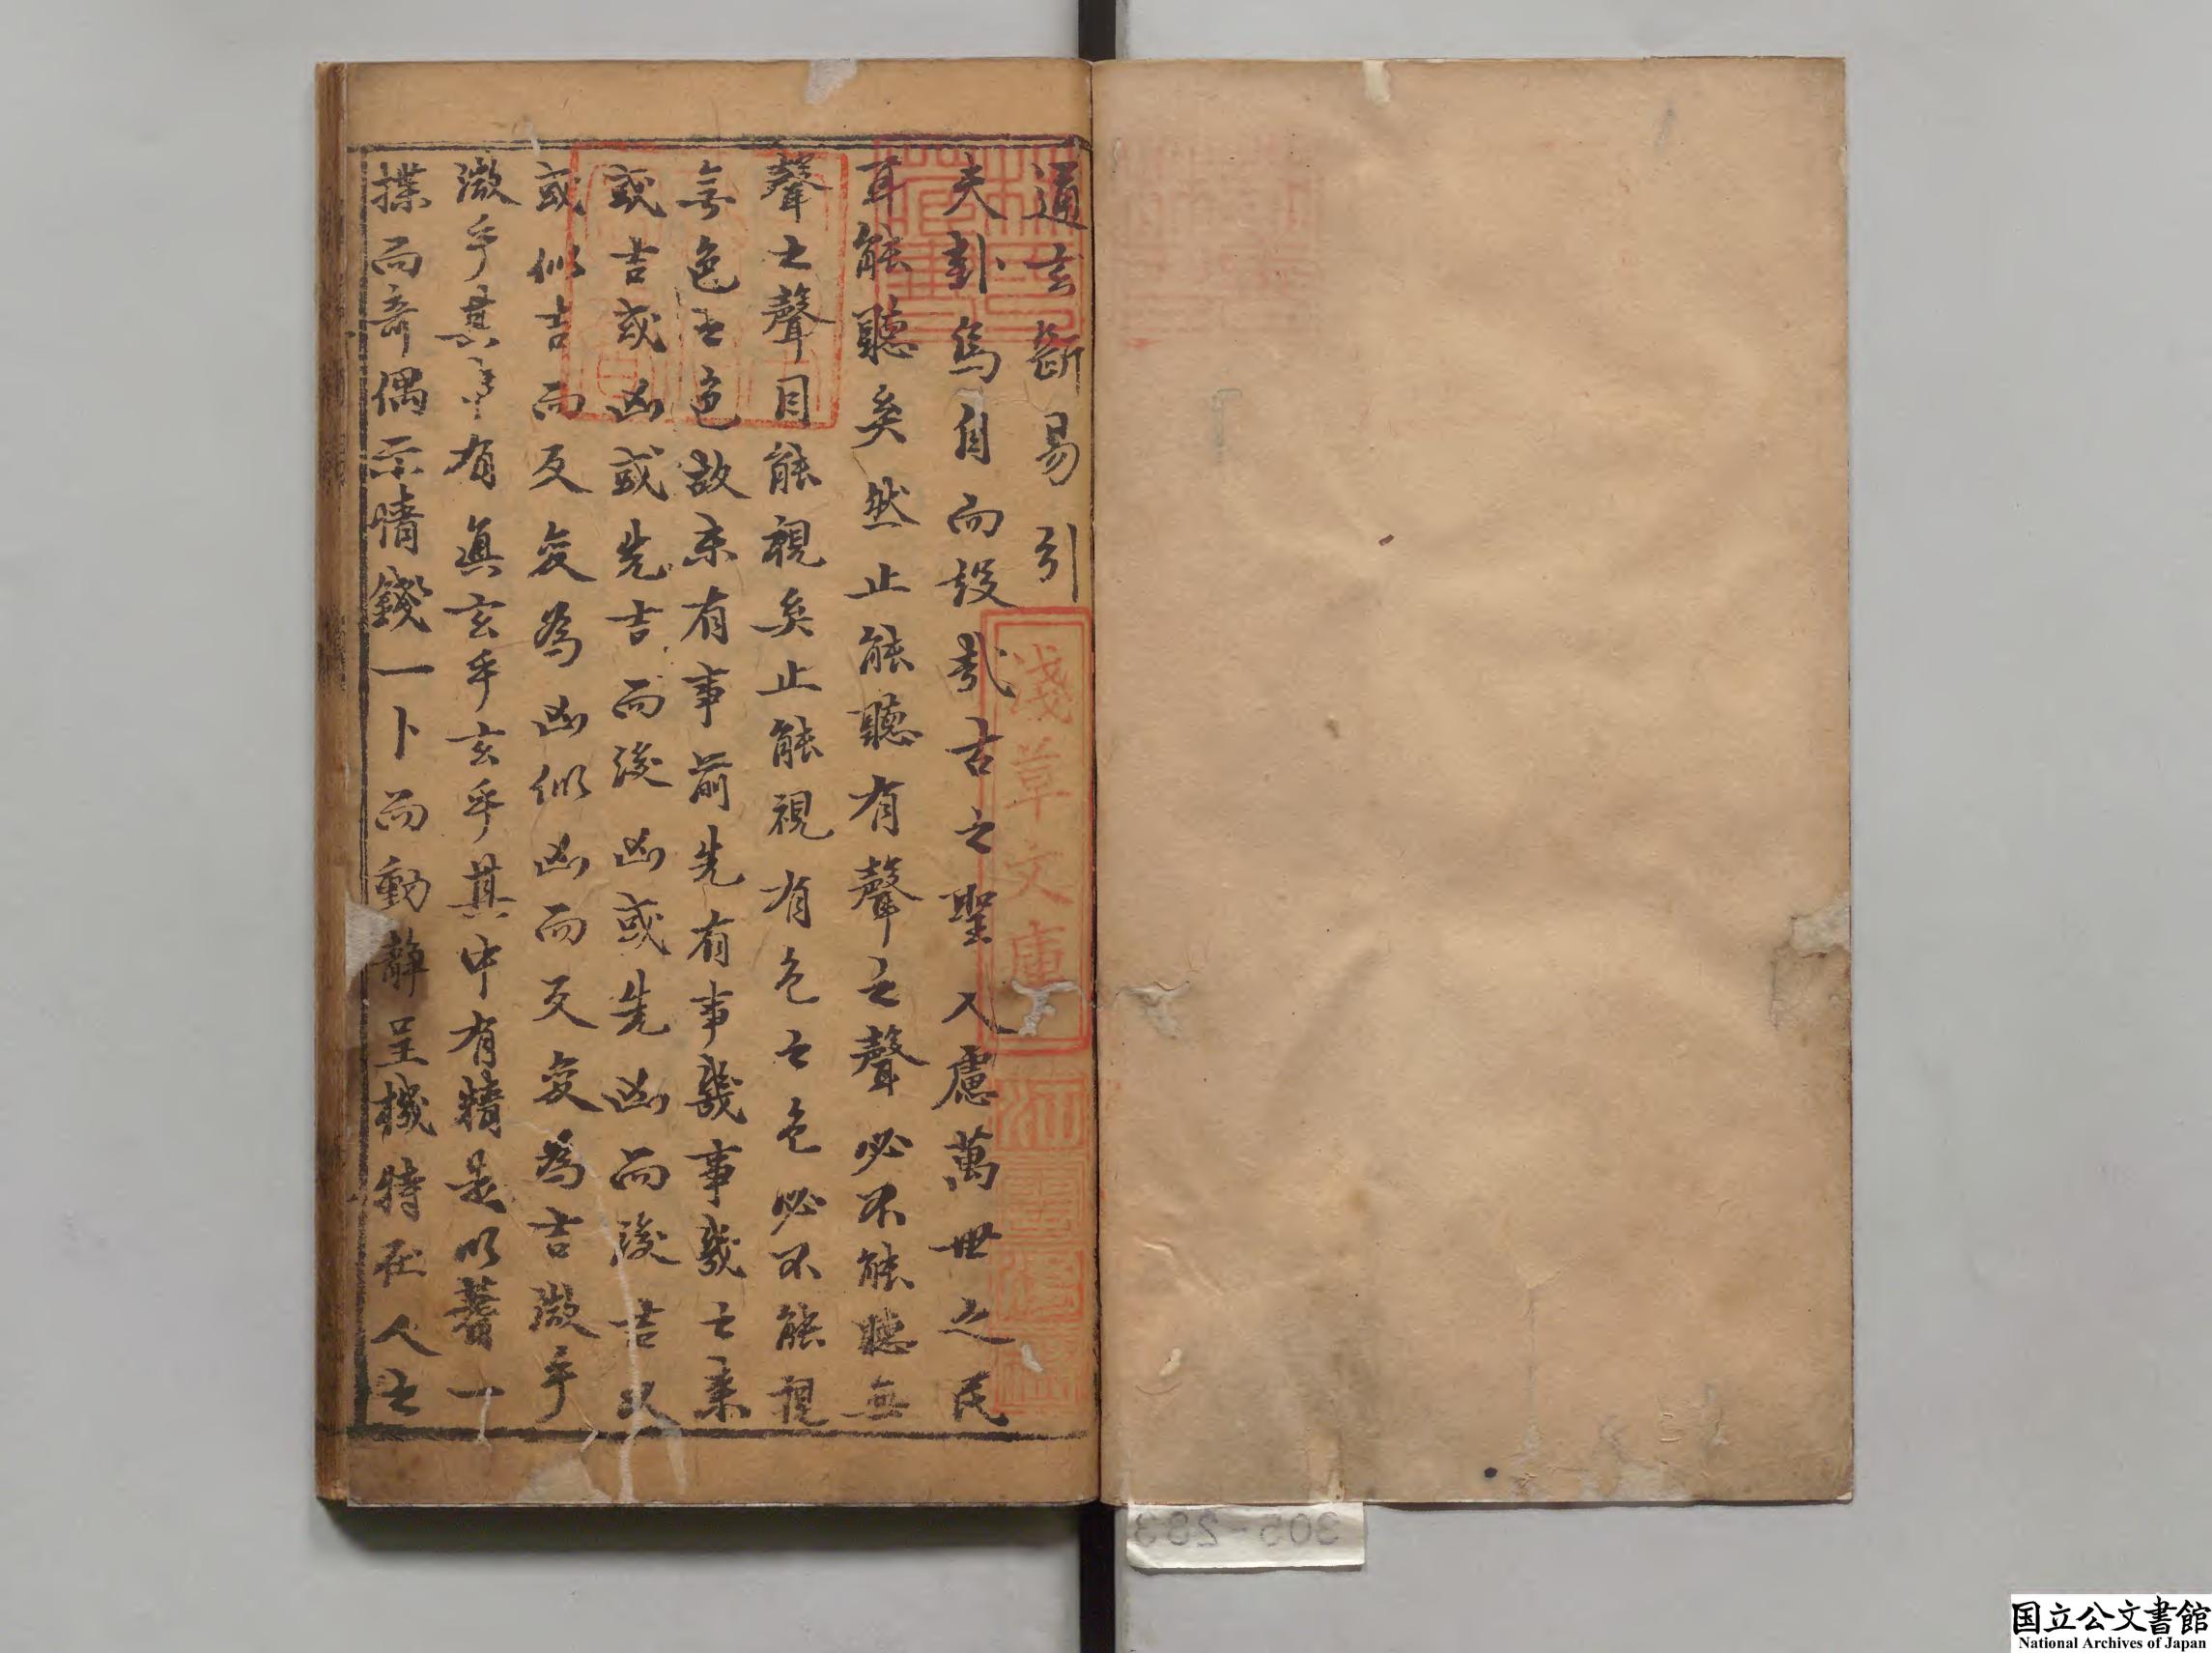 通玄斷易引
夫卦爲自而設哉古之聖人慮萬世之民
耳能聽矣然止能聽有聲之聲必不能聽無
聲之聲目能視矣止能視有色之色必不能視
無色之色故未有事前先有事幾事幾之來
或吉或凶或先吉而後凶或先凶而後吉又
或似吉而反變爲凶似凶而反變爲吉微乎
微乎其中有眞玄乎玄乎其中有精是以蓍一
揲而奇偶示情錢一卜而動靜呈機特在人之
淺草文庫
林氏藏書
305-283
国立公文書館
National Archives of Japan